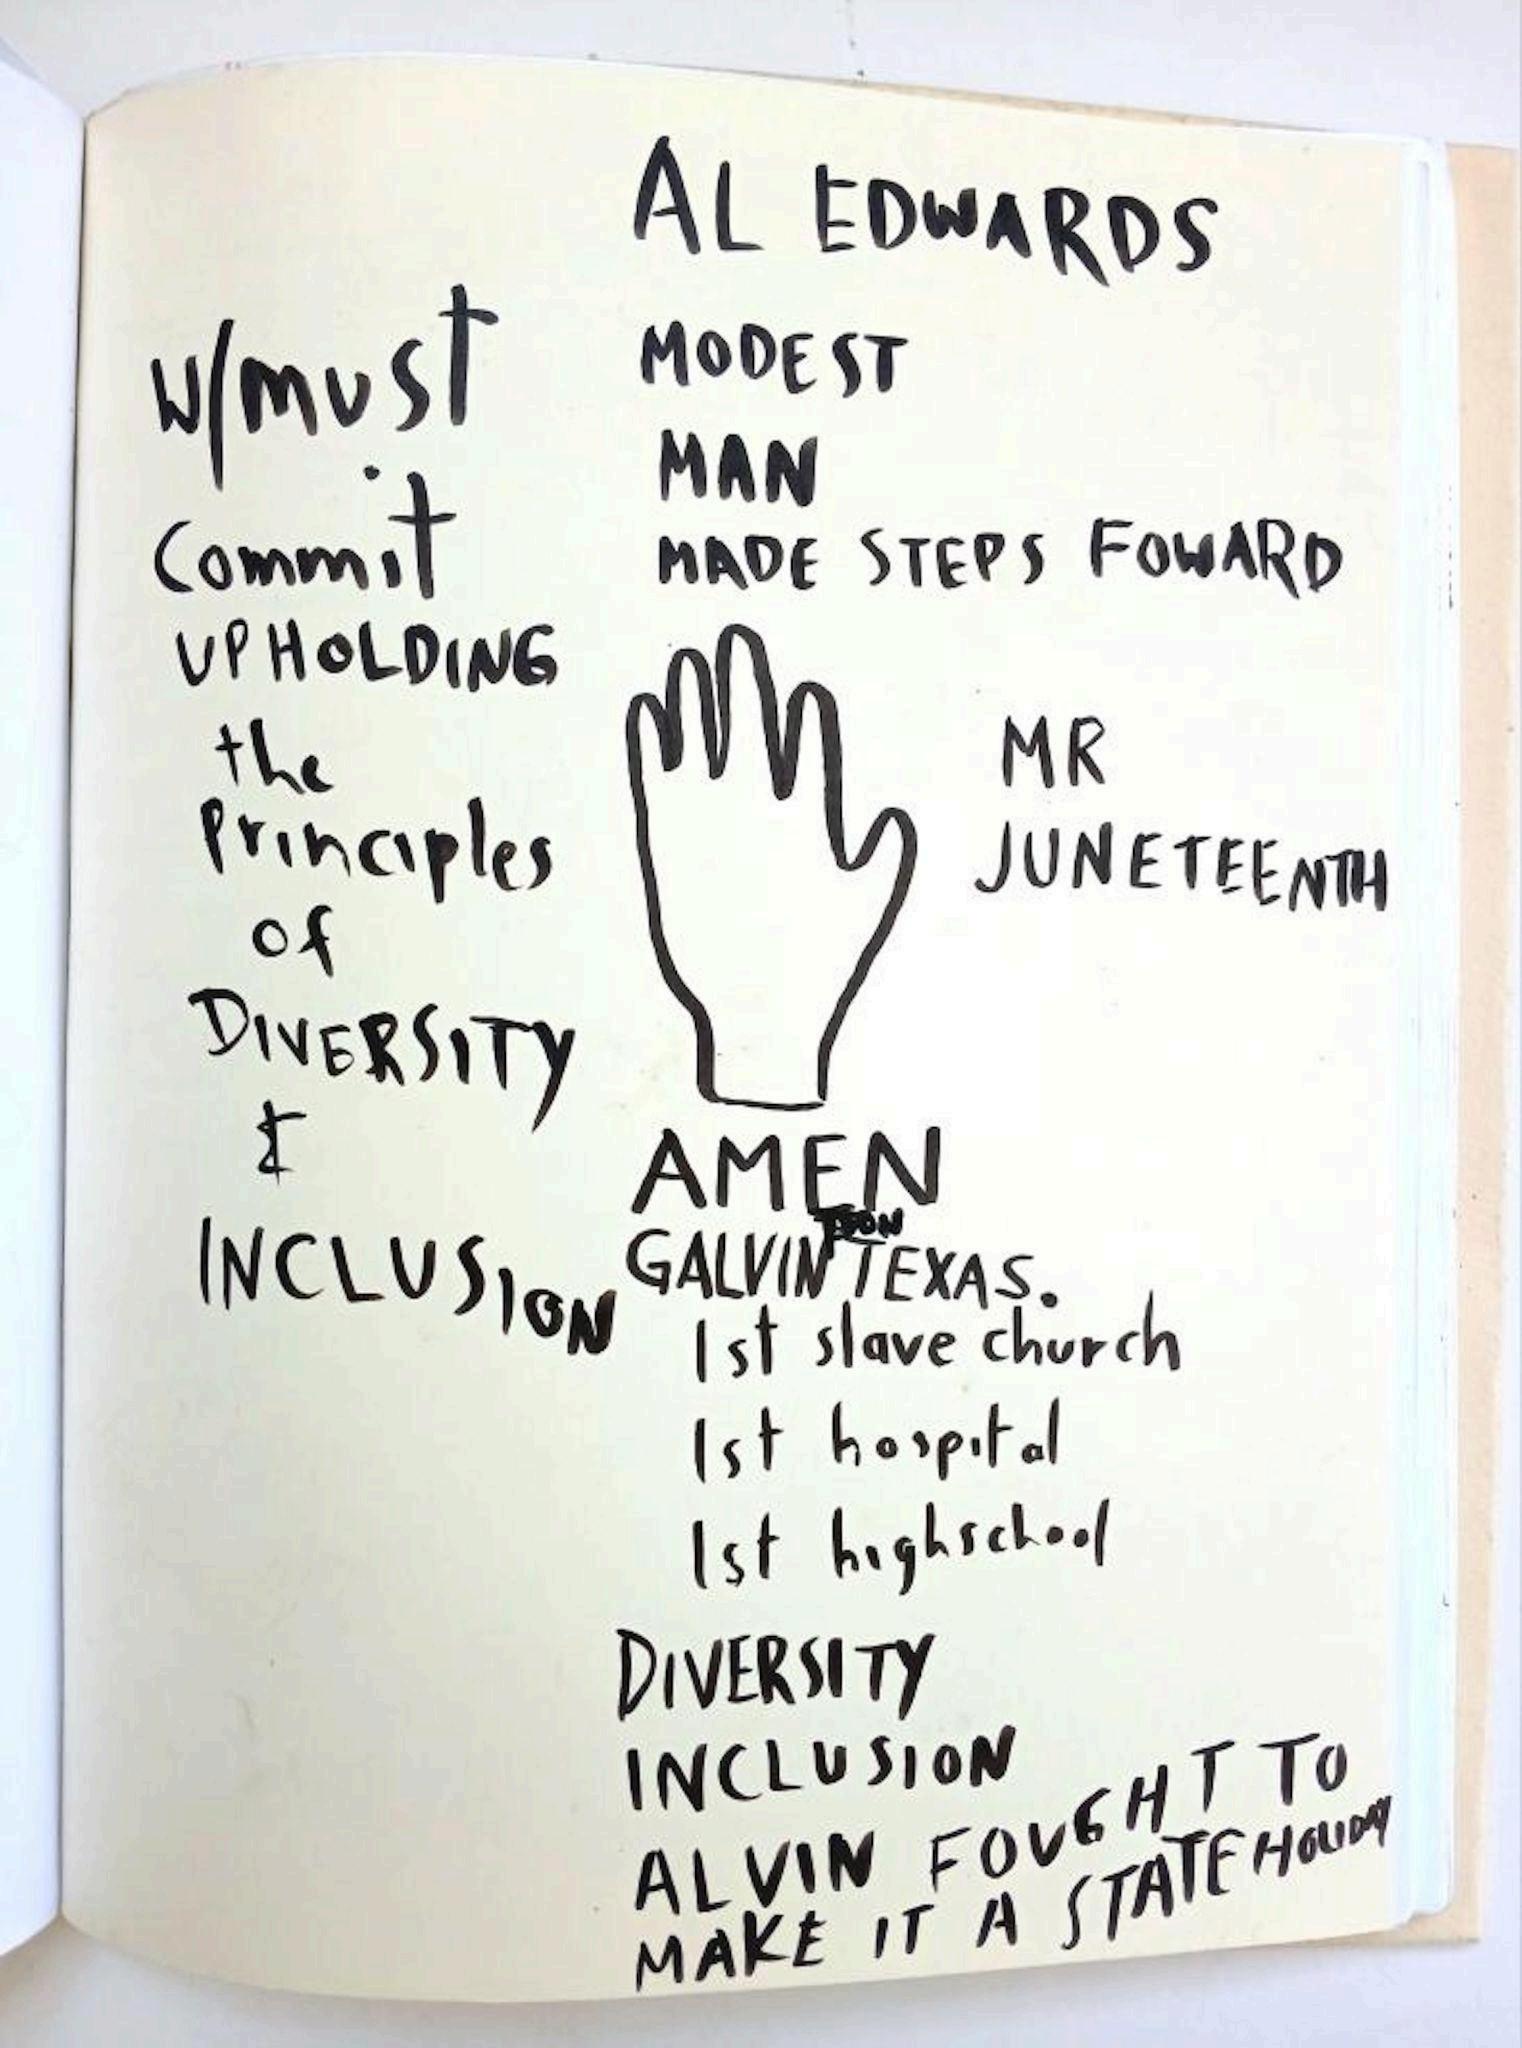 AL EDWARDS
MODEST
MAN
MADE STEPS FOWARD
MR
JUNETEENTH
W/MUST
Commit
UPHOLDING
the
Principles
of
DIVERSITY
&
INCLUSION
AMEN
TSON
GALVIN TEXAS.
1st slave church
1st hospital
1st highschool
DIVERSITY
INCLUSION
ALVIN FOUGHT TO
MAKE IT A STATE HOLIDAY